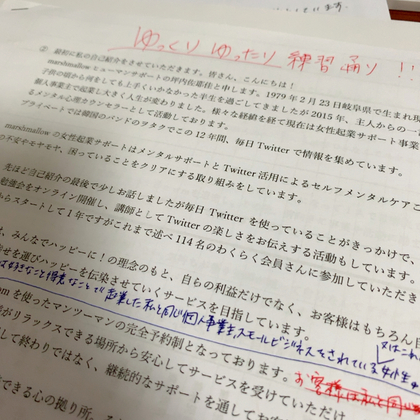 ゆっくり ゆったり 練習通り!!
② 最初に私の自己紹介をさせていただきます。皆さん、こんにちは!
marshmallow ヒューマンサポートの坪内佐那佳と申します。1979 年 2 月 23 日岐阜県で生まれ現
子供の頃から何をしても上手くいかなかった半生を過ごしてきましたが 2015 年、主人からの一
個人事業主で起業し大きく人生が変わりました。様々な経緯を経て現在は女性起業サポート事業
るメンタル心理カウンセラーとして活動しております。
プライベートでは韓国のバンドのヲタクでこの 12 年間、毎日 Twitter で情報を集めています。
marshmallow の女性起業サポートはメンタルサポートと Twitter 活用によるセルフメンタルケアこ
の不安やモヤモヤ、困っていることをクリアにする取り組みをしています。
先ほど自己紹介の最後で少しお話しましたが毎日 Twitter を使っていることがきっかけで、
勉強会をオンライン開催し、講師として Twitter の楽しさをお伝えする活動もしています。
からスタートして 1 年ですがこれまで述べ 114 名のわくらく会員さんに参加していただき
、みんなでハッピーに!の理念のもと、自らの利益だけでなく、お客様はもちろん
せを運びハッピーを伝染させていくサービスを目指しています。
好きなこと得意なことで起業した私と同じ個人事業主、スモールビジネスをされている女性
om を使ったマンツーマンの完全予約制となっております。
がリラックスできる場所から安心してサービスを受けていただけ
お客様は私と同じ
して終わりではなく、継続的なサポートを通してお
できる心の拠り所、